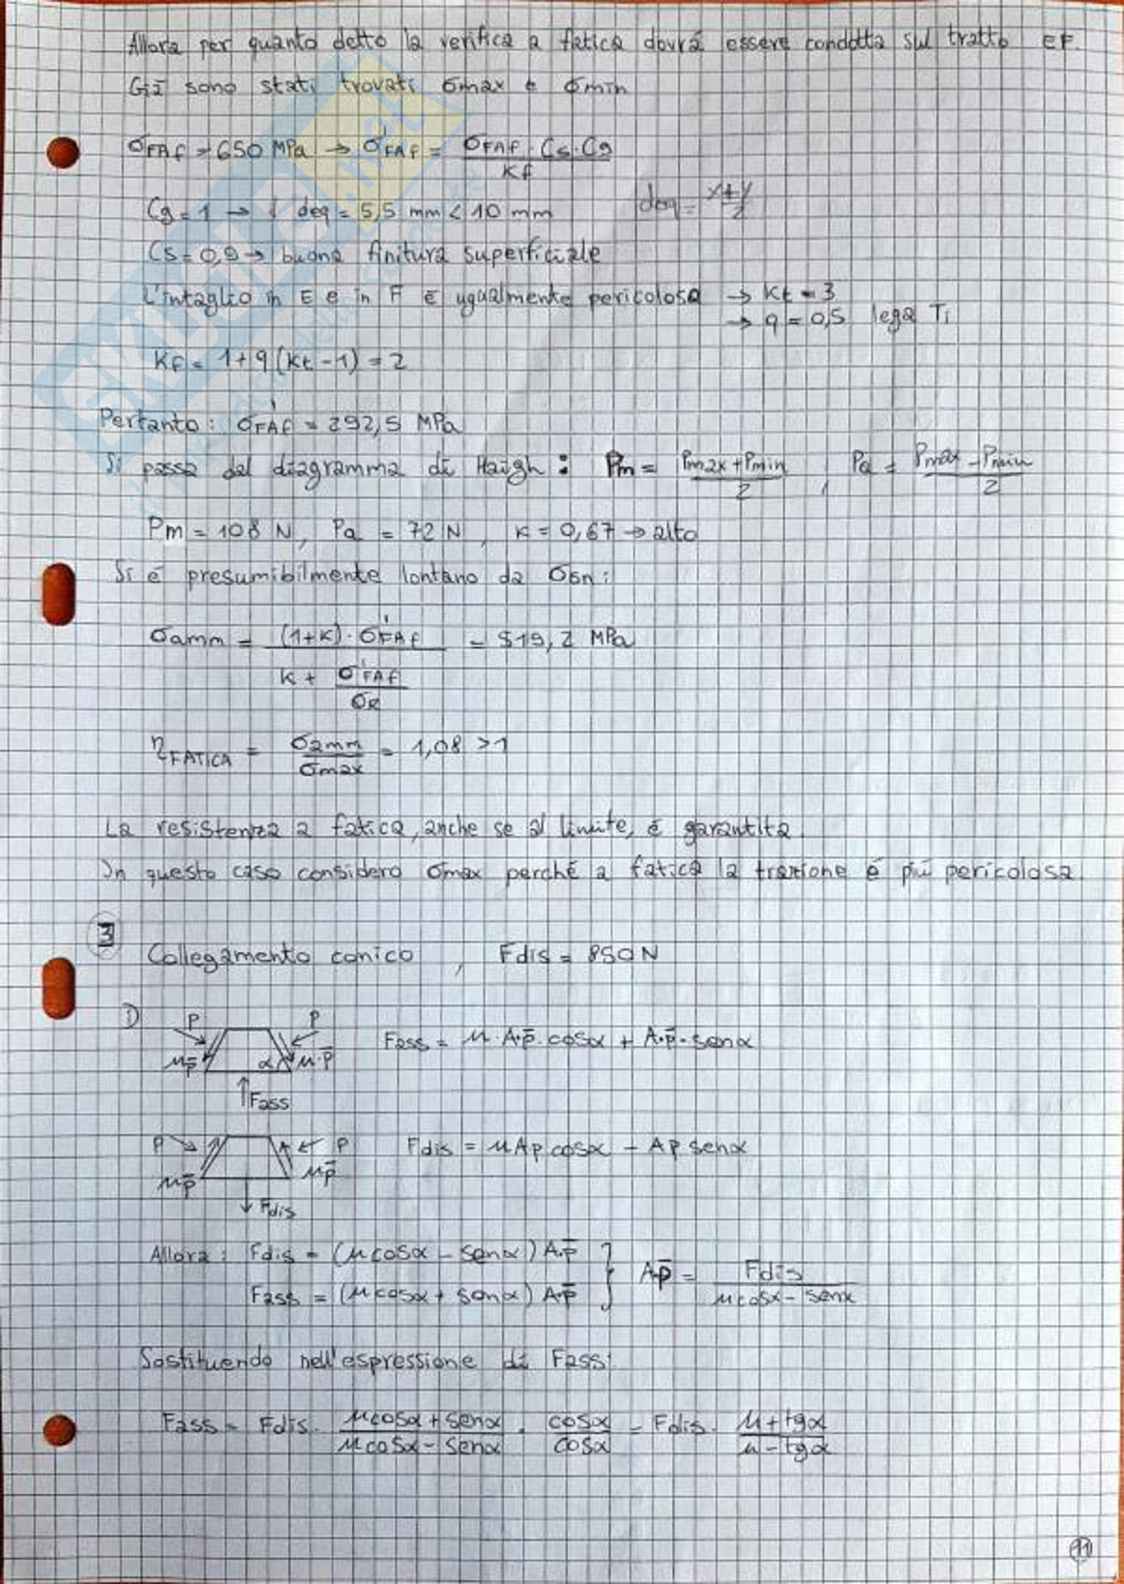 Allora per quanto detto la verifica a fatica dovrá essere condotta sul tratto EF.
Giá sono stati trovati σmax e σmin
σFAf = 650 MPa → σ'FAf = σFAf · Cs · Cg / Kf
Cg = 1 → deq = 5,5 mm < 10 mm deq = x+y / 2
Cs = 0,9 → buona finitura superficiale
L'intaglio in E e in F é ugualmente pericoloso → Kt = 3
→ q = 0,5 lega Ti
Kf = 1+q (Kt - 1) = 2
Pertanto: σ'FAf = 292,5 MPa
Si passa dal diagramma di Haigh: Pm = Pmax + Pmin / 2 , Pa = Pmax - Pmin / 2
Pm = 108 N, Pa = 72 N, K = 0,67 → alto
Si é presumibilmente lontano da σsn:
σamm = (1+K) · σ'FAf / K + σ'FAf / σR = 519,2 MPa
ηFATICA = σamm / σmax = 1,08 > 1
La resistenza a fatica, anche se al limite, é garantita.
In questo caso considero σmax perché a fatica la trazione é piú pericolosa.
3
Collegamento conico , Fdis = 850 N
1)
P P
μp̄ α μ·p̄ Fass = μ·A·p̄·cosα + A·p̄·senα
Fass
P P Fdis = μAp cosα - Ap senα
μp̄ μp̄
Fdis
Allora: Fdis = (μcosα - senα) A·p̄
Fass = (μcosα + senα) A·p̄ } A·p̄ = Fdis / μcosα - senα
Sostituendo nell'espressione di Fass:
Fass = Fdis · μcosα + senα / μcosα - senα · cosα / cosα = Fdis · μ + tgα / μ - tgα
11